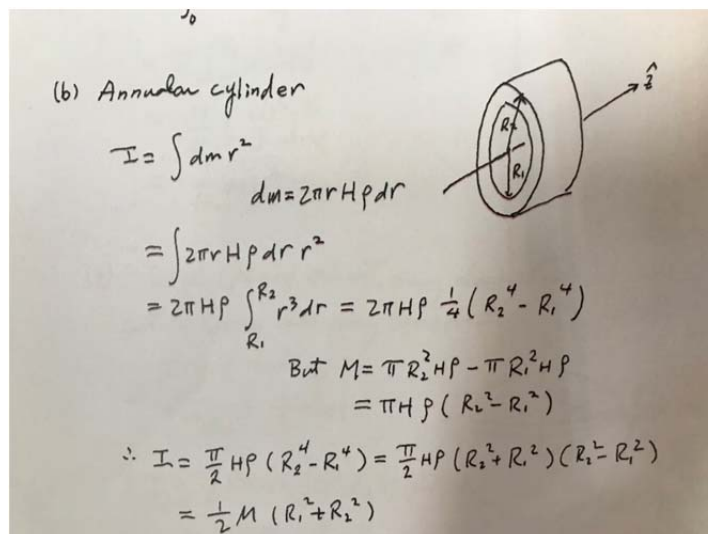 ∫₀
(b) Annular cylinder
ẑ
R₂
R₁
I = ∫ dm r²
dm = 2πrHρdr
= ∫ 2πrHρdr r²
= 2πHρ ∫_{R₁}^{R₂} r³dr = 2πHρ 1/4 (R₂⁴ - R₁⁴)
But M = πR₂²Hρ - πR₁²Hρ
= πHρ (R₂² - R₁²)
∴ I = π/2 Hρ (R₂⁴ - R₁⁴) = π/2 Hρ (R₂² + R₁²)(R₂² - R₁²)
= 1/2 M (R₁² + R₂²)